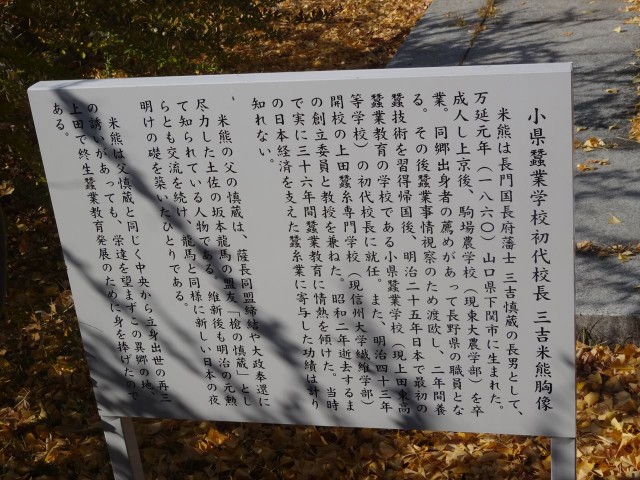 小県蚕業学校初代校長 三吉米熊胸像
米熊は長門国長府藩士 三吉慎蔵の長男として、
万延元年（一八六〇）山口県下関市に生まれた。
成人し上京後、駒場農学校（現東大農学部）を卒
業。同郷出身者の薦めがあって長野県の職員とな
る。その後蚕業事情視察のため渡欧し、二年間養
蚕技術を習得帰国後、明治二十五年日本で最初の
蚕業教育の学校である小県蚕業学校（現上田東高
等学校）の初代校長に就任。また、明治四十三年
開校の上田蚕糸専門学校（現信州大学繊維学部）
の創立委員と教授を兼ねた。昭和二年逝去するま
で実に三十六年間蚕業教育に情熱を傾けた。当時
の日本経済を支えた蚕糸業に寄与した功績は計り
知れない。
米熊の父の慎蔵は、薩長同盟締結や大政奉還に
尽力した土佐の坂本龍馬の盟友「槍の慎蔵」とし
て知られている人物である。維新後も明治の元勲
らとも交流を続け、龍馬と同様に新しい日本の夜
明けの礎を築いたひとりである。
米熊は父慎蔵と同じく中央から立身出世の再三
の誘いがあっても、栄達を望まずこの異郷の地、
上田で終生蚕業教育発展のために身を捧げたので
ある。